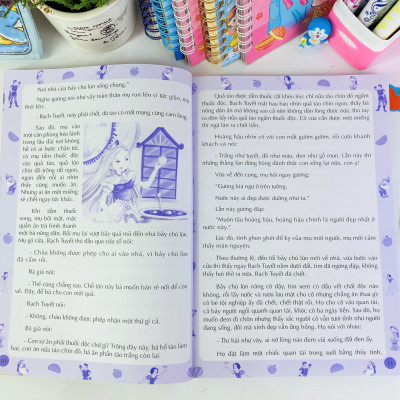 Nơi nhà của bảy chú lùn sống chung."
Nghe gương nói như vậy toàn thân mụ run lên vì tức giận, mụ
thét lên:
- Bạch Tuyết, mày phải chết, dù tao có mất mạng cũng cam lòng.
Sau đó, mụ vào
một căn phòng hẻo lánh
trong lâu đài nơi không
hề có ai bước chân tới,
và mụ tẩm thuốc độc
vào quả táo, quả táo
chín đỏ trông rất ngon,
ngon đến nỗi ai nhìn
thấy cũng muốn ăn.
Nhưng ai ăn một miếng
sẽ chết ngay tức khắc.
Khi tẩm thuốc
xong, mụ bôi mặt, mặc
quần áo trá hình thành
một bà nông dân. Rồi mụ lại vượt bảy quả núi đến nhà bảy chú lùn.
Mụ gõ cửa, Bạch Tuyết thò đầu qua cửa sổ nói:
- Cháu không được phép cho ai vào nhà, vì bảy chú lùn
đã cấm rồi.
Bà già nói:
- Thế cũng chẳng sao. Chỗ táo này bà muốn bán rẻ nốt để còn
về. Đây, để bà cho con một quả.
Bạch Tuyết nói:
- Không, cháu không được phép nhận một thứ gì cả.
Bà già nói:
- Con sợ ăn phải thuốc độc chứ gì? Trông đây này, bà bổ táo làm
hai, con ăn nửa táo chín đỏ, bà ăn phần táo trắng còn lại.
Quả táo được tẩm thuốc rất khéo léo: chỉ nửa táo chín đỏ ngấm
thuốc độc. Bạch Tuyết mắt hau háu nhìn quả táo chín ngon, thấy bà
nông dân ăn mà không sao cả nên không cầm lòng được nữa, thò tay
ra đón lấy nửa quả táo ngấm thuốc độc. Cô vừa cắn được một miếng
thì ngã lăn ra chết liền.
Hoàng hậu nhìn cô với con mắt gườm gườm, rồi cười khanh
khách và nói:
- Trắng như tuyết, đỏ như máu, đen như gỗ mun. Lần này thì
những thằng lùn đừng hòng đánh thức con sống lại nữa, con ạ!
Vừa về đến cung, mụ hỏi ngay gương:
"Gương kia ngự ở trên tường,
Nước này ai đẹp được dường như ta."
Lần này gương đáp:
"Muôn tâu hoàng hậu, hoàng hậu chính là người đẹp nhất ở
nước này."
Lúc đó, tính ghen ghét đố kỵ của mụ mới nguôi, mụ mới cảm
thấy mãn nguyện.
Theo thường lệ, đến tối bảy chú lùn mới về nhà, vừa bước vào
cửa thì thấy ngay Bạch Tuyết nằm dưới đất, tim đã ngừng đập, không
thấy hơi thở ra nữa, Bạch Tuyết đã chết.
Bảy chú lùn nâng cô dậy, tìm xem có dấu vết chất độc nào
không, rồi lấy nước và rượu lau mặt cho cô nhưng chẳng ăn thua gì:
cô bé tội nghiệp ấy đã chết, chết thật rồi. Họ cho cô vào quan tài,
cả bảy người ngồi quanh quan tài, khóc cô ba ngày liền. Sau đó, họ
muốn đem đi chôn nhưng thấy sắc người cô vẫn tươi tỉnh như người
đang sống, đôi má xinh đẹp vẫn ửng hồng. Họ nói với nhau:
- Thi hài như vậy, ai nỡ lòng nào đem vùi xuống đất đen ấy.
Họ đặt làm một chiếc quan tài trong suốt bằng thủy tinh,